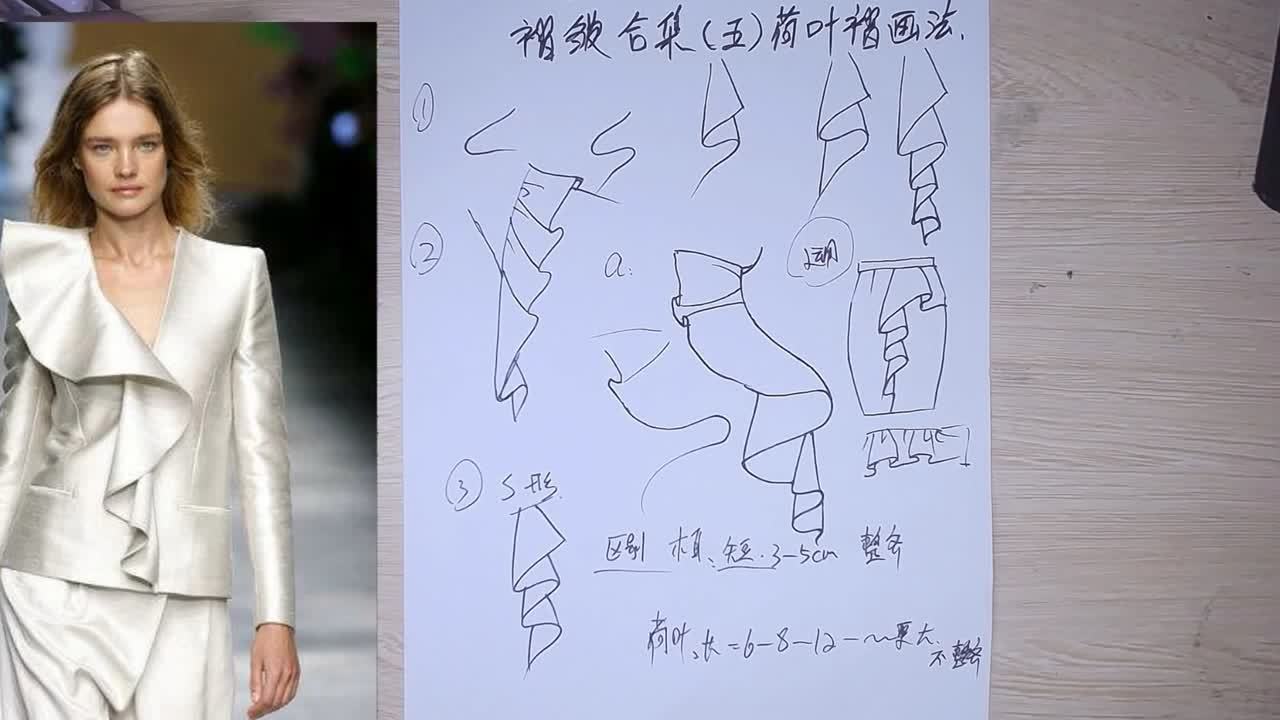 褶皱合集(五)荷叶褶画法.
①
②
a:
运用
③ S形.
区别 木耳、短.3-5cm 整齐
荷叶、长=6-8-12-~更大.
不整齐